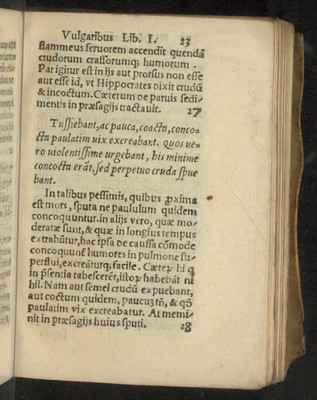 Vulgaribus Lib. I. 23
flammeus feruorem accendit quendã
crudorum crassorumq; humorum.
Par igitur est in ijs aut prorsus non esse
aut esse id, vt Hippocrates dixit crudũ
& incoctum. Cæterum de paruis sedi-
mentis in præsagijs tractauit. 27
Tußiebant, ac pauca, coacta, conco-
cta paulatim uix excreabant. quos ue-
ro uiolentißime urgebant, his minime
concocta erãt, sed perpetuo cruda spue
bant.
In talibus pessimis, quibus ꝓxima
est mors, sputa ne paululum quidem
concoquuntur. in alijs vero, quæ mo-
deratæ sunt, & quæ in longius tempus
extrahũtur, hac ipsa de caussa cõmode
concoquunt humores in pulmone su-
perflui, excreãturq; facile. Cæteꝝ id q
in p̃sentia tabescerẽt, istoꝝ habebãt ni
hil. Nam aut semel crudũ expuebant,
aut coctum quidem, paucũ tñ, & qđ
paulatim vix excreabatur. At memi-
nit in præsagijs huius sputi. 28